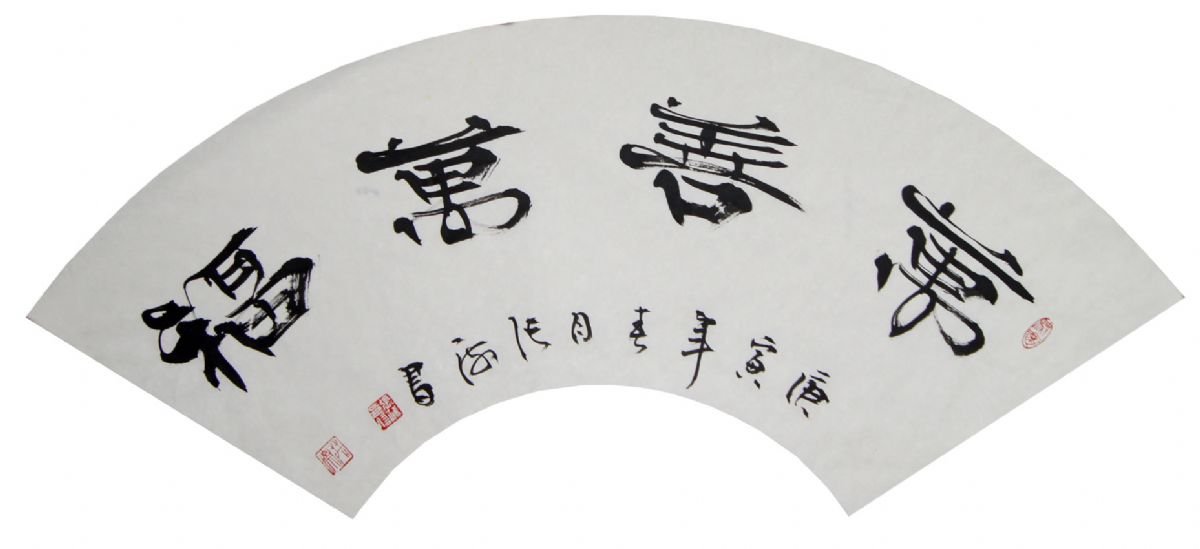 萬善萬福
庚寅年春月張海書